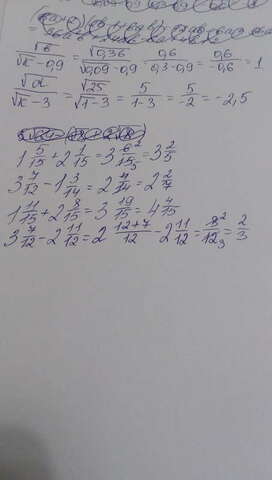 √в/(√к-0,9) = √0,36/(√0,09-0,9) = 0,6/(0,3-0,9) = 0,6/(-0,6) = 1
√a/(√к-3) = √25/(√1-3) = 5/(1-3) = 5/(-2) = -2,5
1 5/15 + 2 1/15 = 3 6²/15₅ = 3 2/5
3 7/12 - 1 3/14 = 2 4/14 = 2 2/7
1 11/15 + 2 8/15 = 3 19/15 = 4 4/15
3 7/12 - 2 11/12 = 2 (12+7)/12 - 2 11/12 = 8²/12₃ = 2/3